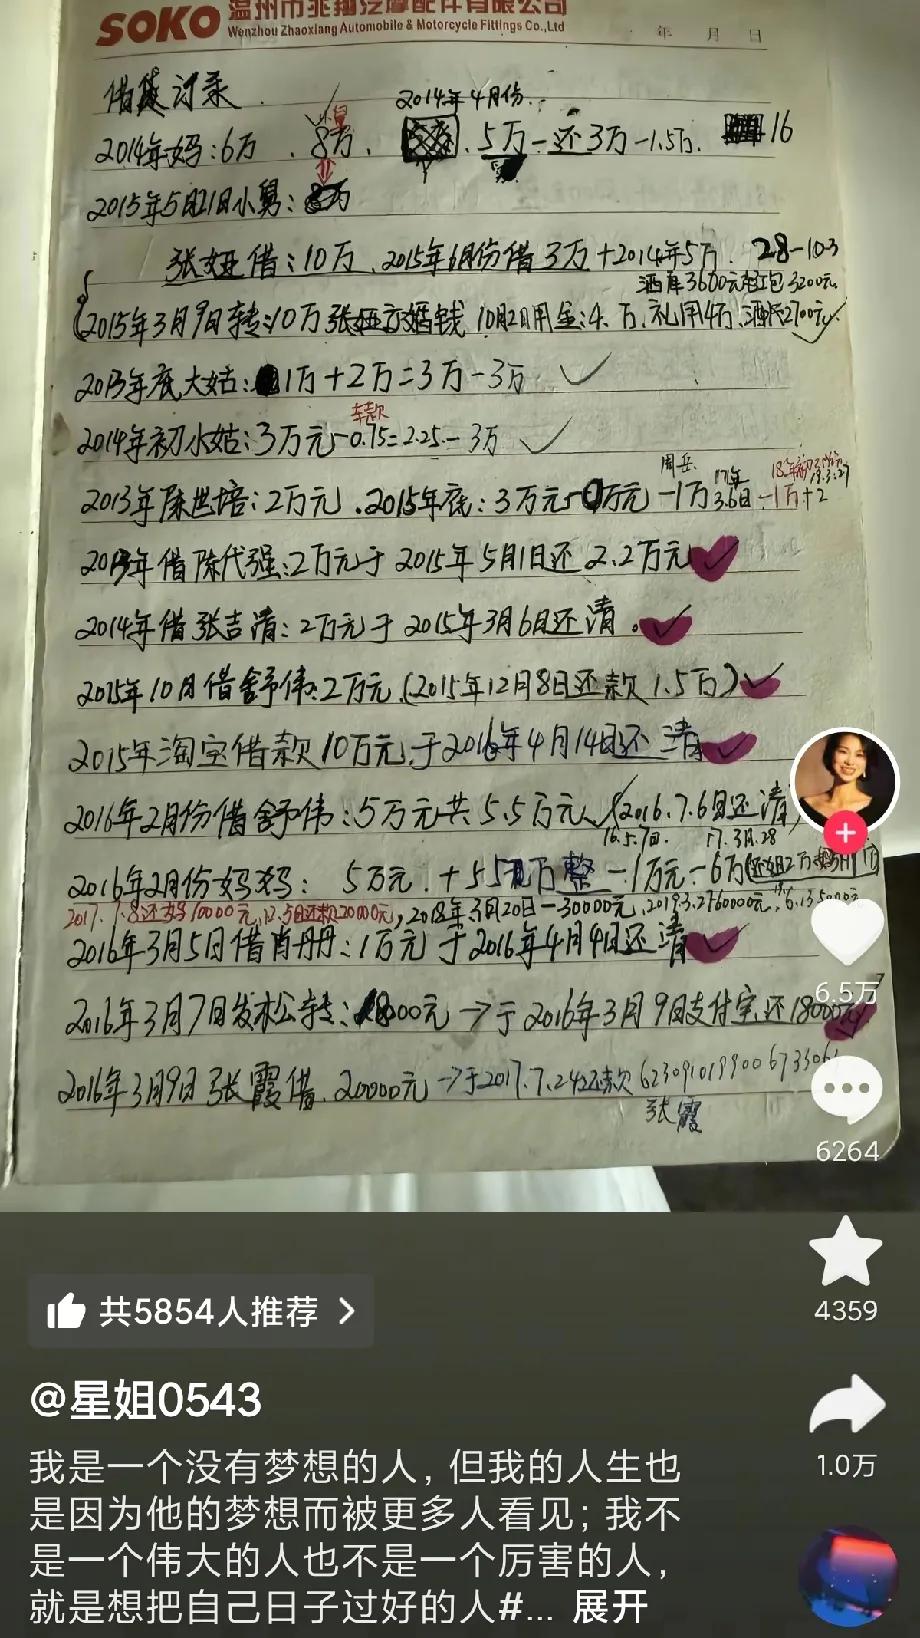 SOKO 温州市兆翔汽摩配件有限公司
Wenzhou Zhaoxiang Automobile & Motorcycle Fittings Co.,Ltd
年 月 日
借装记录
2014年4月份
2014年妈:6万 8万 5万-还3万-1.5万 16
2015年5月21日小舅:
张娅借:10万 2015年6月份借3万+2014年5万 28-10-3
酒席3600元红包3200元
2015年3月9日转:10万张娅 婚钱 10月2日用金:4万 礼用4万 2700元
2013年底大姑: 1万+2万=3万-3万
车款
2014年初小姑:3万元-0.75=2.25-3万
周岳
17年
2013年陈世培:2万元.2015年底:3万元 万元-1万 3.6日-1万+2
年借陈代强:2万元于2015年5月1日还2.2万元
2014年借张吉清:2万元于2015年3月6日还清。
2015年10月借舒伟:2万元(2015年12月8日还款1.5万)
2015年淘宝借款10万元于2016年4月14日还清
2016年2月份借舒伟:5万元共5.5万元(2016.7.6日还清)
16.5.7日. 17.3月.28
2016年2月份妈妈: 5万元.+5 万整-1万元-6万
2017.7.8还妈10000元,12.5日还款20000元,2018年3月20日-30000元,2019.3.27 60000元
2016年3月5日借肖丹丹:1万元于2016年4月4日还清
2016年3月7日发松转: 000元→于2016年3月9日支付宝还18000元
2016年3月9日张霞借.20000元→于2017.7.24还款
张霞
6.5万
6264
4359
1.0万
共5854人推荐 >
@星姐0543
我是一个没有梦想的人，但我的人生也
是因为他的梦想而被更多人看见；我不
是一个伟大的人也不是一个厉害的人，
就是想把自己日子过好的人#... 展开